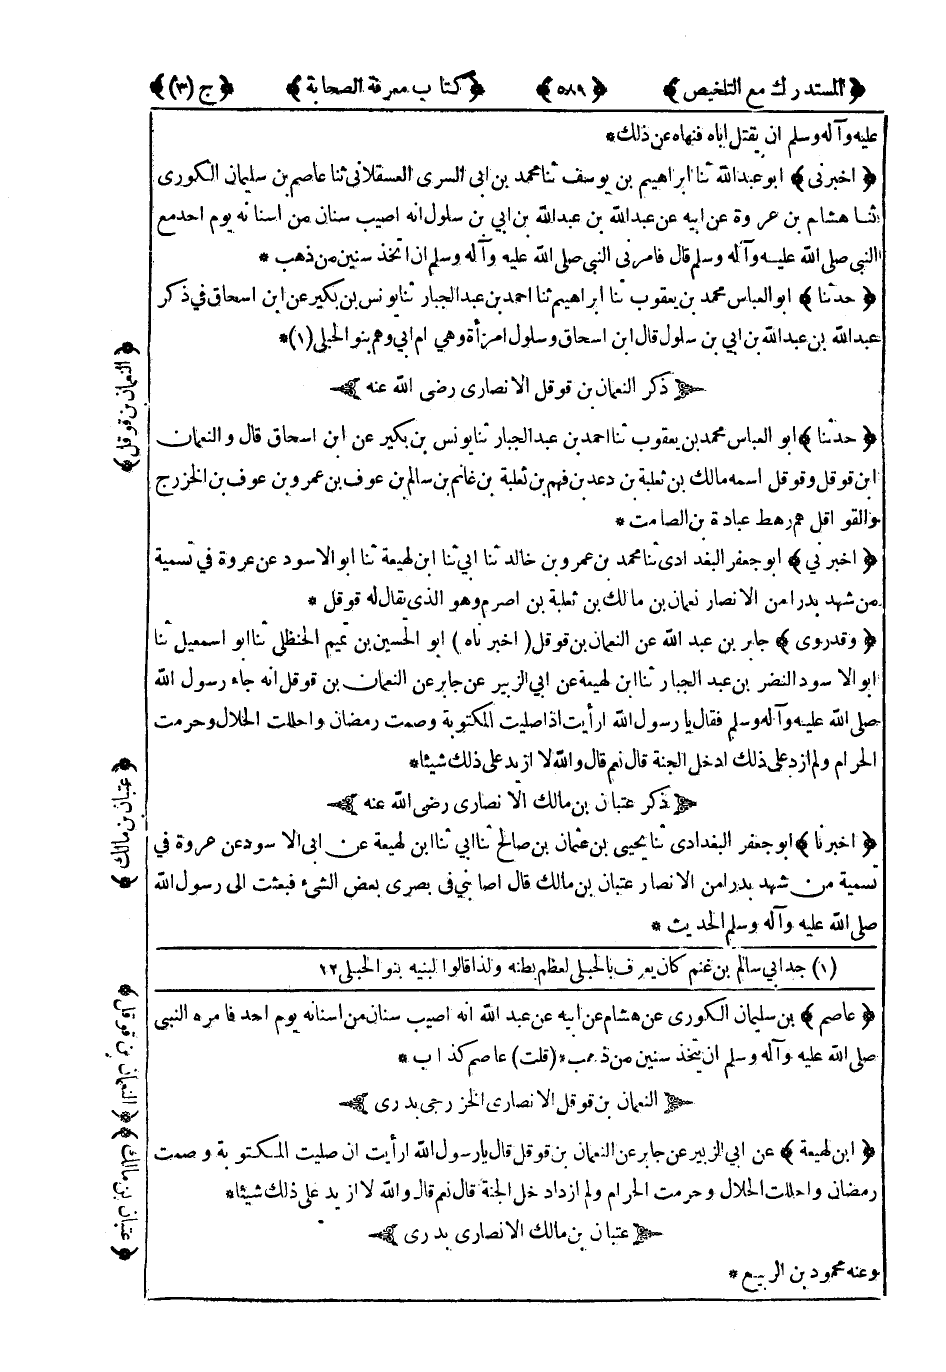 ﴿المستدرك مع التلخيص﴾ ﴿٥٨٩﴾ ﴿كتاب معرفة الصحابة﴾ ﴿ج (٣)﴾
عليه وآله وسلم ان يقتل اباه فنهاه عن ذلك*
﴿اخبرني﴾ ابو عبد الله ثنا ابراهيم بن يوسف ثنا محمد بن ابى السرى العسقلانى ثنا عاصم بن سليمان الكورى
ثنا هشام بن عروة عن ابيه عن عبد الله بن عبد الله بن ابي بن سلول انه اصيب سنان من اسنانه يوم احد مع
النبي صلى الله عليه وآله وسلم قال فامرنى النبي صلى الله عليه وآله وسلم ان اتخذ سنين من ذهب *
﴿حدثنا﴾ ابو العباس محمد بن يعقوب ثنا ابراهيم ثنا احمد بن عبد الجبار ثنا يونس بن بكير عن ابن اسحاق في ذكر
عبد الله بن عبد الله بن ابي بن سلول قال ابن اسحاق وسلول امرأة وهي ام ابي وهم بنو الحبلى(١)*
﴿ذكر النعمان بن قوقل الانصارى رضى الله عنه﴾
﴿حدثنا﴾ ابو العباس محمد بن يعقوب ثنا احمد بن عبد الجبار ثنا يونس بن بكير عن ابن اسحاق قال والنعمان
ابن قوقل وقوقل اسمه مالك بن ثعلبة بن دعد بن فهم بن ثعلبة بن غانم بن سالم بن عوف بن عمرو بن عوف بن الخزرج
والقواقل هم رهط عبادة بن الصامت *
﴿اخبرني﴾ ابو جعفر البغدادى ثنا محمد بن عمرو بن خالد ثنا ابي ثنا ابن لهيعة ثنا ابو الاسود عن عروة في تسمية
من شهد بدرا من الانصار نعمان بن مالك بن ثعلبة بن اصرم وهو الذى يقال له قوقل *
﴿وقد روى﴾ جابر بن عبد الله عن النعمان بن قوقل (اخبرناه) ابو الحسين بن تميم الحنظلى ثنا ابو اسمعيل ثنا
ابو الاسود النضر بن عبد الجبار ثنا ابن لهيعة عن ابي الزبير عن جابر عن النعمان بن قوقل انه جاء رسول الله
صلى الله عليه وآله وسلم فقال يا رسول الله ارأيت اذا صليت المكتوبة وصمت رمضان واحللت الحلال وحرمت
الحرام ولم ازد على ذلك ادخل الجنة قال نعم قال والله لا ازيد على ذلك شيئا*
﴿ذكر عتبان بن مالك الانصارى رضى الله عنه﴾
﴿اخبرنا﴾ ابو جعفر البغدادى ثنا يحيى بن عثمان بن صالح ثنا ابي ثنا ابن لهيعة عن ابى الاسود عن عروة في
تسمية من شهد بدرا من الانصار عتبان بن مالك قال اصابني فى بصرى بعض الشئ فبعثت الى رسول الله
صلى الله عليه وآله وسلم الحديث *
(١) جد ابي سالم بن غنم كان يعرف بالحبلى لعظم بطنه ولذا قالوا لبنيه بنو الحبلى ١٢
﴿عاصم﴾ بن سليمان الكورى عن هشام عن ابيه عن عبد الله انه اصيب سنان من اسنانه يوم احد فامره النبي
صلى الله عليه وآله وسلم ان يتخذ سنين من ذهب* (قلت) عاصم كذاب *
﴿النعمان بن قوقل الانصارى الخزرجى بدرى﴾
﴿ابن لهيعة﴾ عن ابي الزبير عن جابر عن النعمان بن قوقل قال يا رسول الله ارأيت ان صليت المكتوبة وصمت
رمضان واحللت الحلال وحرمت الحرام ولم ازد ادخل الجنة قال نعم قال والله لا ازيد على ذلك شيئا*
﴿عتبان بن مالك الانصارى بدرى﴾
وعنه محمود بن الربيع *
﴿النعمان بن قوقل﴾
﴿عتبان بن مالك﴾
﴿النعمان بن قوقل﴾ ﴿عتبان بن مالك﴾